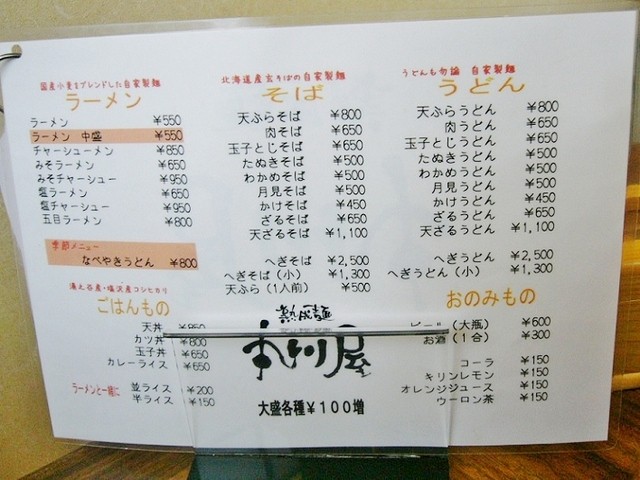 国産小麦をブレンドした自家製麺
ラーメン
ラーメン ¥550
ラーメン 中盛 ¥550
チャーシューメン ¥850
みそラーメン ¥650
みそチャーシュー ¥950
塩ラーメン ¥650
塩チャーシュー ¥950
五目ラーメン ¥800
季節メニュー
なべやきうどん ¥800
湯之谷産・塩沢産コシヒカリ
ごはんもの
天丼 ¥850
カツ丼 ¥800
玉子丼 ¥650
カレーライス ¥650
ラーメンと一緒に
並ライス ¥200
半ライス ¥150
北海道産玄そばの自家製麺
そば
天ぷらそば ¥800
肉そば ¥650
玉子とじそば ¥650
たぬきそば ¥500
わかめそば ¥500
月見そば ¥500
かけそば ¥450
ざるそば ¥650
天ざるそば ¥1,100
へぎそば ¥2,500
へぎそば(小) ¥1,300
天ぷら(1人前) ¥500
熟成麺
屋
大盛各種¥100増
うどんも勿論 自家製麺
うどん
天ぷらうどん ¥800
肉うどん ¥650
玉子とじうどん ¥650
たぬきうどん ¥500
わかめうどん ¥500
月見うどん ¥500
かけうどん ¥450
ざるうどん ¥650
天ざるうどん ¥1,100
へぎうどん ¥2,500
へぎうどん(小) ¥1,300
おのみもの
ビール(大瓶) ¥600
お酒(1合) ¥300
コーラ ¥150
キリンレモン ¥150
オレンジジュース ¥150
ウーロン茶 ¥150